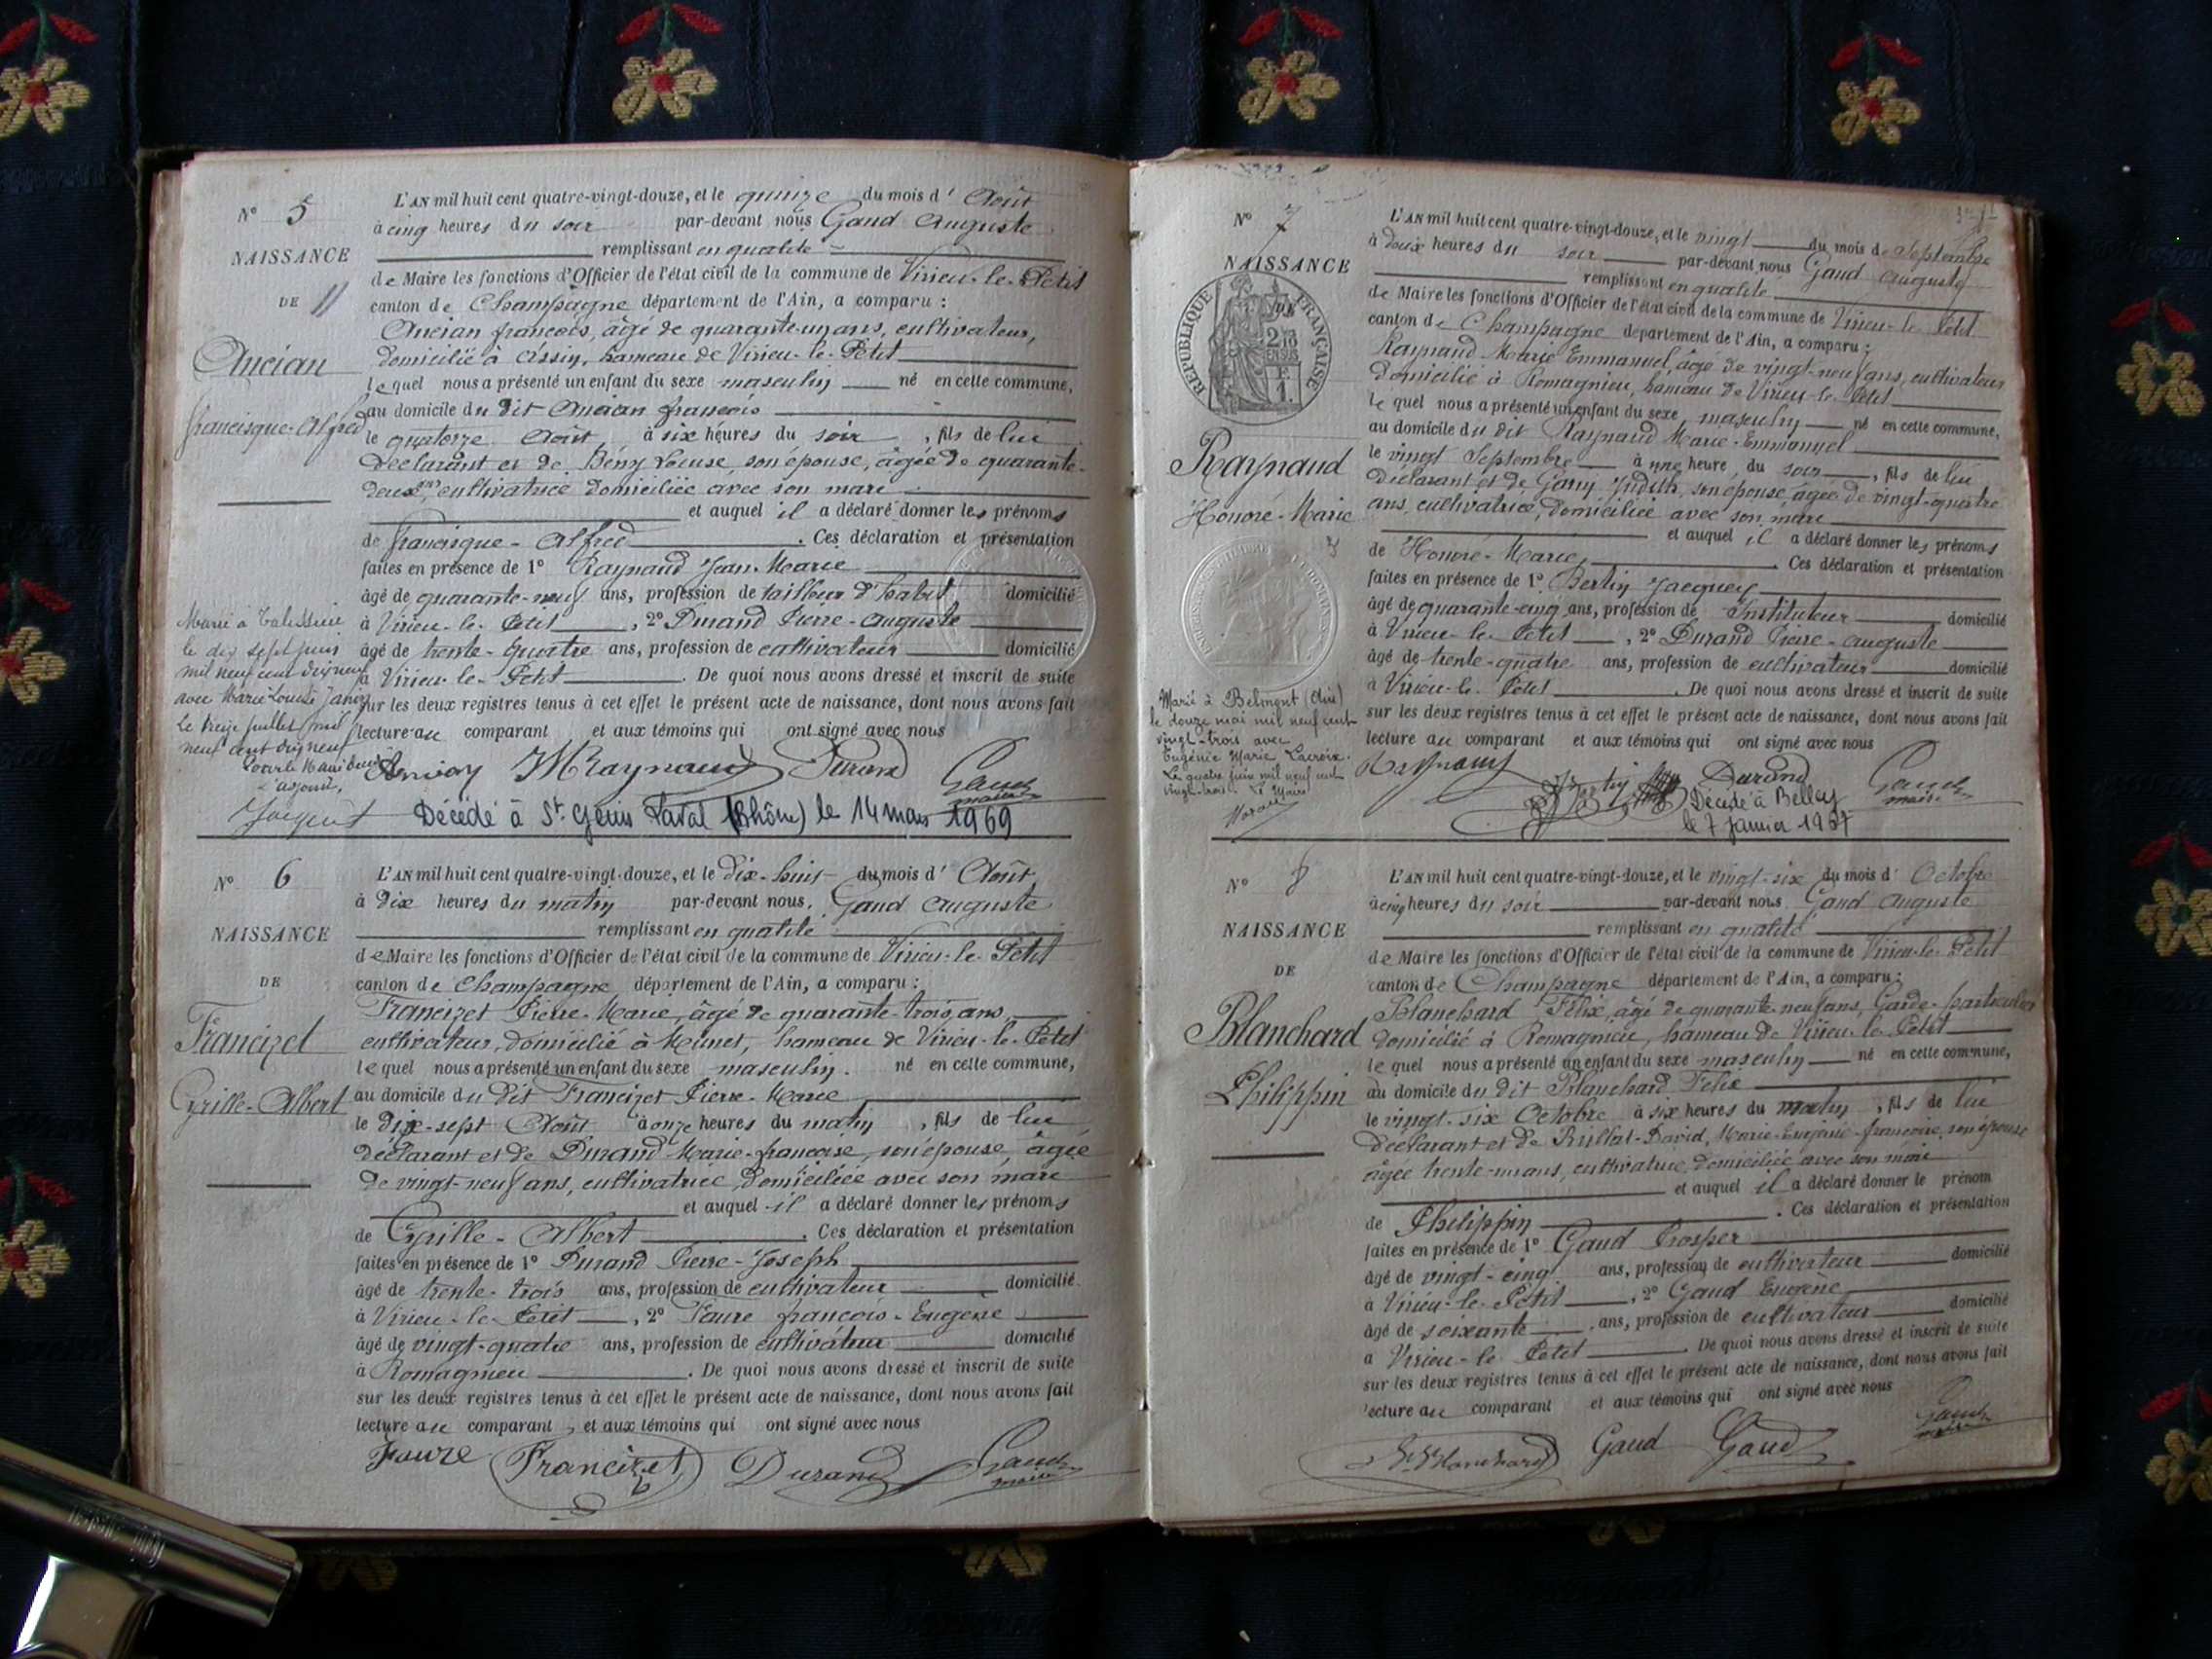 N° 5
NAISSANCE
DE
Ancian
francisque-Alfred
L'AN mil huit cent quatre-vingt-douze, et le quinze du mois d' Août
à cinq heures du soir par-devant nous Gaud Auguste
remplissant en qualité
de Maire les fonctions d'Officier de l'état civil de la commune de Virieu-le-Petit
canton de Champagne département de l'Ain, a comparu :
Ancian françois, âgé de quarante-un ans, cultivateur,
domicilié à Assin, hameau de Virieu-le-Petit
lequel nous a présenté un enfant du sexe masculin né en cette commune,
au domicile du dit Ancian françois
le quatorze Août à six heures du soir, fils de lui
déclarant et de Bény Louise, son épouse, âgée de quarante-
deux ans, cultivatrice domiciliée avec son mari
et auquel il a déclaré donner les prénoms
de francisque-Alfred. Ces déclaration et présentation
faites en présence de 1° Raynaud Jean-Marie
âgé de quarante-neuf ans, profession de tailleur d'habit domicilié
à Virieu-le-Petit, 2° Durand Pierre-Auguste
âgé de trente-quatre ans, profession de cultivateur domicilié
à Virieu-le-Petit. De quoi nous avons dressé et inscrit de suite
sur les deux registres tenus à cet effet le présent acte de naissance, dont nous avons fait
lecture au comparant et aux témoins qui ont signé avec nous
Marié à Talissieu
le dix sept juin
mil neuf cent dix neuf
avec Marie Louise Janin
Le treize juillet mil
neuf cent dix neuf
Pour le Maire
l'adjoint,
JMRaynaud Durand Gaud
maire
Décédé à St Genis Laval (Rhône) le 14 mars 1969
N° 6
NAISSANCE
DE
Francizet
Cyrille-Albert
L'AN mil huit cent quatre-vingt-douze, et le dix-huit du mois d' Août
à dix heures du matin par-devant nous, Gaud Auguste
remplissant en qualité
de Maire les fonctions d'Officier de l'état civil de la commune de Virieu-le-Petit
canton de Champagne département de l'Ain, a comparu :
Francizet Pierre-Marie, âgé de quarante-trois ans,
cultivateur, domicilié à Munet, hameau de Virieu-le-Petit
lequel nous a présenté un enfant du sexe masculin. né en cette commune,
au domicile du dit Francizet Pierre-Marie
le dix-sept Août à onze heures du matin, fils de lui
déclarant et de Durand Marie-françoise, son épouse, âgée
de vingt-neuf ans, cultivatrice, domiciliée avec son mari
et auquel il a déclaré donner les prénoms
de Cyrille-Albert. Ces déclaration et présentation
faites en présence de 1° Durand Pierre-Joseph
âgé de trente-trois ans, profession de cultivateur domicilié
à Virieu-le-Petit, 2° Faure françois-Eugène
âgé de vingt-quatre ans, profession de cultivateur domicilié
à Romagnieu. De quoi nous avons dressé et inscrit de suite
sur les deux registres tenus à cet effet le présent acte de naissance, dont nous avons fait
lecture au comparant, et aux témoins qui ont signé avec nous
Faure Francizet Durand Gaud
maire
N° 7
NAISSANCE
RÉPUBLIQUE FRANÇAISE
Raynaud
Honoré-Marie
L'AN mil huit cent quatre-vingt-douze, et le vingt du mois de Septembre
à deux heures du soir par-devant nous Gaud Auguste
remplissant en qualité
de Maire les fonctions d'Officier de l'état civil de la commune de Virieu-le-Petit
canton de Champagne département de l'Ain, a comparu :
Raynaud Marie Emmanuel, âgé de vingt-neuf ans, cultivateur
domicilié à Romagnieu, hameau de Virieu-le-Petit
lequel nous a présenté un enfant du sexe masculin né en cette commune,
au domicile du dit Raynaud Marie-Emmanuel
le vingt Septembre à une heure du soir, fils de lui
déclarant et de Garny Judith, son épouse âgée de vingt-quatre
ans, cultivatrice, domiciliée avec son mari
et auquel il a déclaré donner les prénoms
de Honoré-Marie. Ces déclaration et présentation
faites en présence de 1° Bertin Jacques
âgé de quarante-cinq ans, profession de Instituteur domicilié
à Virieu-le-Petit, 2° Durand Pierre-Auguste
âgé de trente-quatre ans, profession de cultivateur domicilié
à Virieu-le-Petit. De quoi nous avons dressé et inscrit de suite
sur les deux registres tenus à cet effet le présent acte de naissance, dont nous avons fait
lecture au comparant et aux témoins qui ont signé avec nous
Marié à Belmont (Ain)
le douze mai mil neuf cent
vingt-trois avec
Eugénie Marie Lacroix.
Le quatre juin mil neuf cent
vingt-trois. Le Maire
Raynaud Bertin Durand Gaud
maire
Décédé à Belley
le 7 janvier 1967
N° 8
NAISSANCE
DE
Blanchard
Philippin
L'AN mil huit cent quatre-vingt-douze, et le vingt-six du mois d' Octobre
à cinq heures du soir par-devant nous Gaud Auguste
remplissant en qualité
de Maire les fonctions d'Officier de l'état civil de la commune de Virieu-le-Petit
canton de Champagne département de l'Ain, a comparu :
Blanchard Félix, âgé de quarante-neuf ans, Garde-particulier
domicilié à Romagnieu, hameau de Virieu-le-Petit
lequel nous a présenté un enfant du sexe masculin né en cette commune,
au domicile du dit Blanchard Félix
le vingt-six Octobre à six heures du matin, fils de lui
déclarant et de Rullat-David, Marie-Eugénie-françoise, son épouse
âgée trente-un ans, cultivatrice, domiciliée avec son mari
et auquel il a déclaré donner le prénom
de Philippin. Ces déclaration et présentation
faites en présence de 1° Gaud Prosper
âgé de vingt-cinq ans, profession de cultivateur domicilié
à Virieu-le-Petit, 2° Gaud Eugène
âgé de soixante ans, profession de cultivateur domicilié
à Virieu-le-Petit. De quoi nous avons dressé et inscrit de suite
sur les deux registres tenus à cet effet le présent acte de naissance, dont nous avons fait
lecture au comparant et aux témoins qui ont signé avec nous
Blanchard Gaud Gaud Gaud
maire